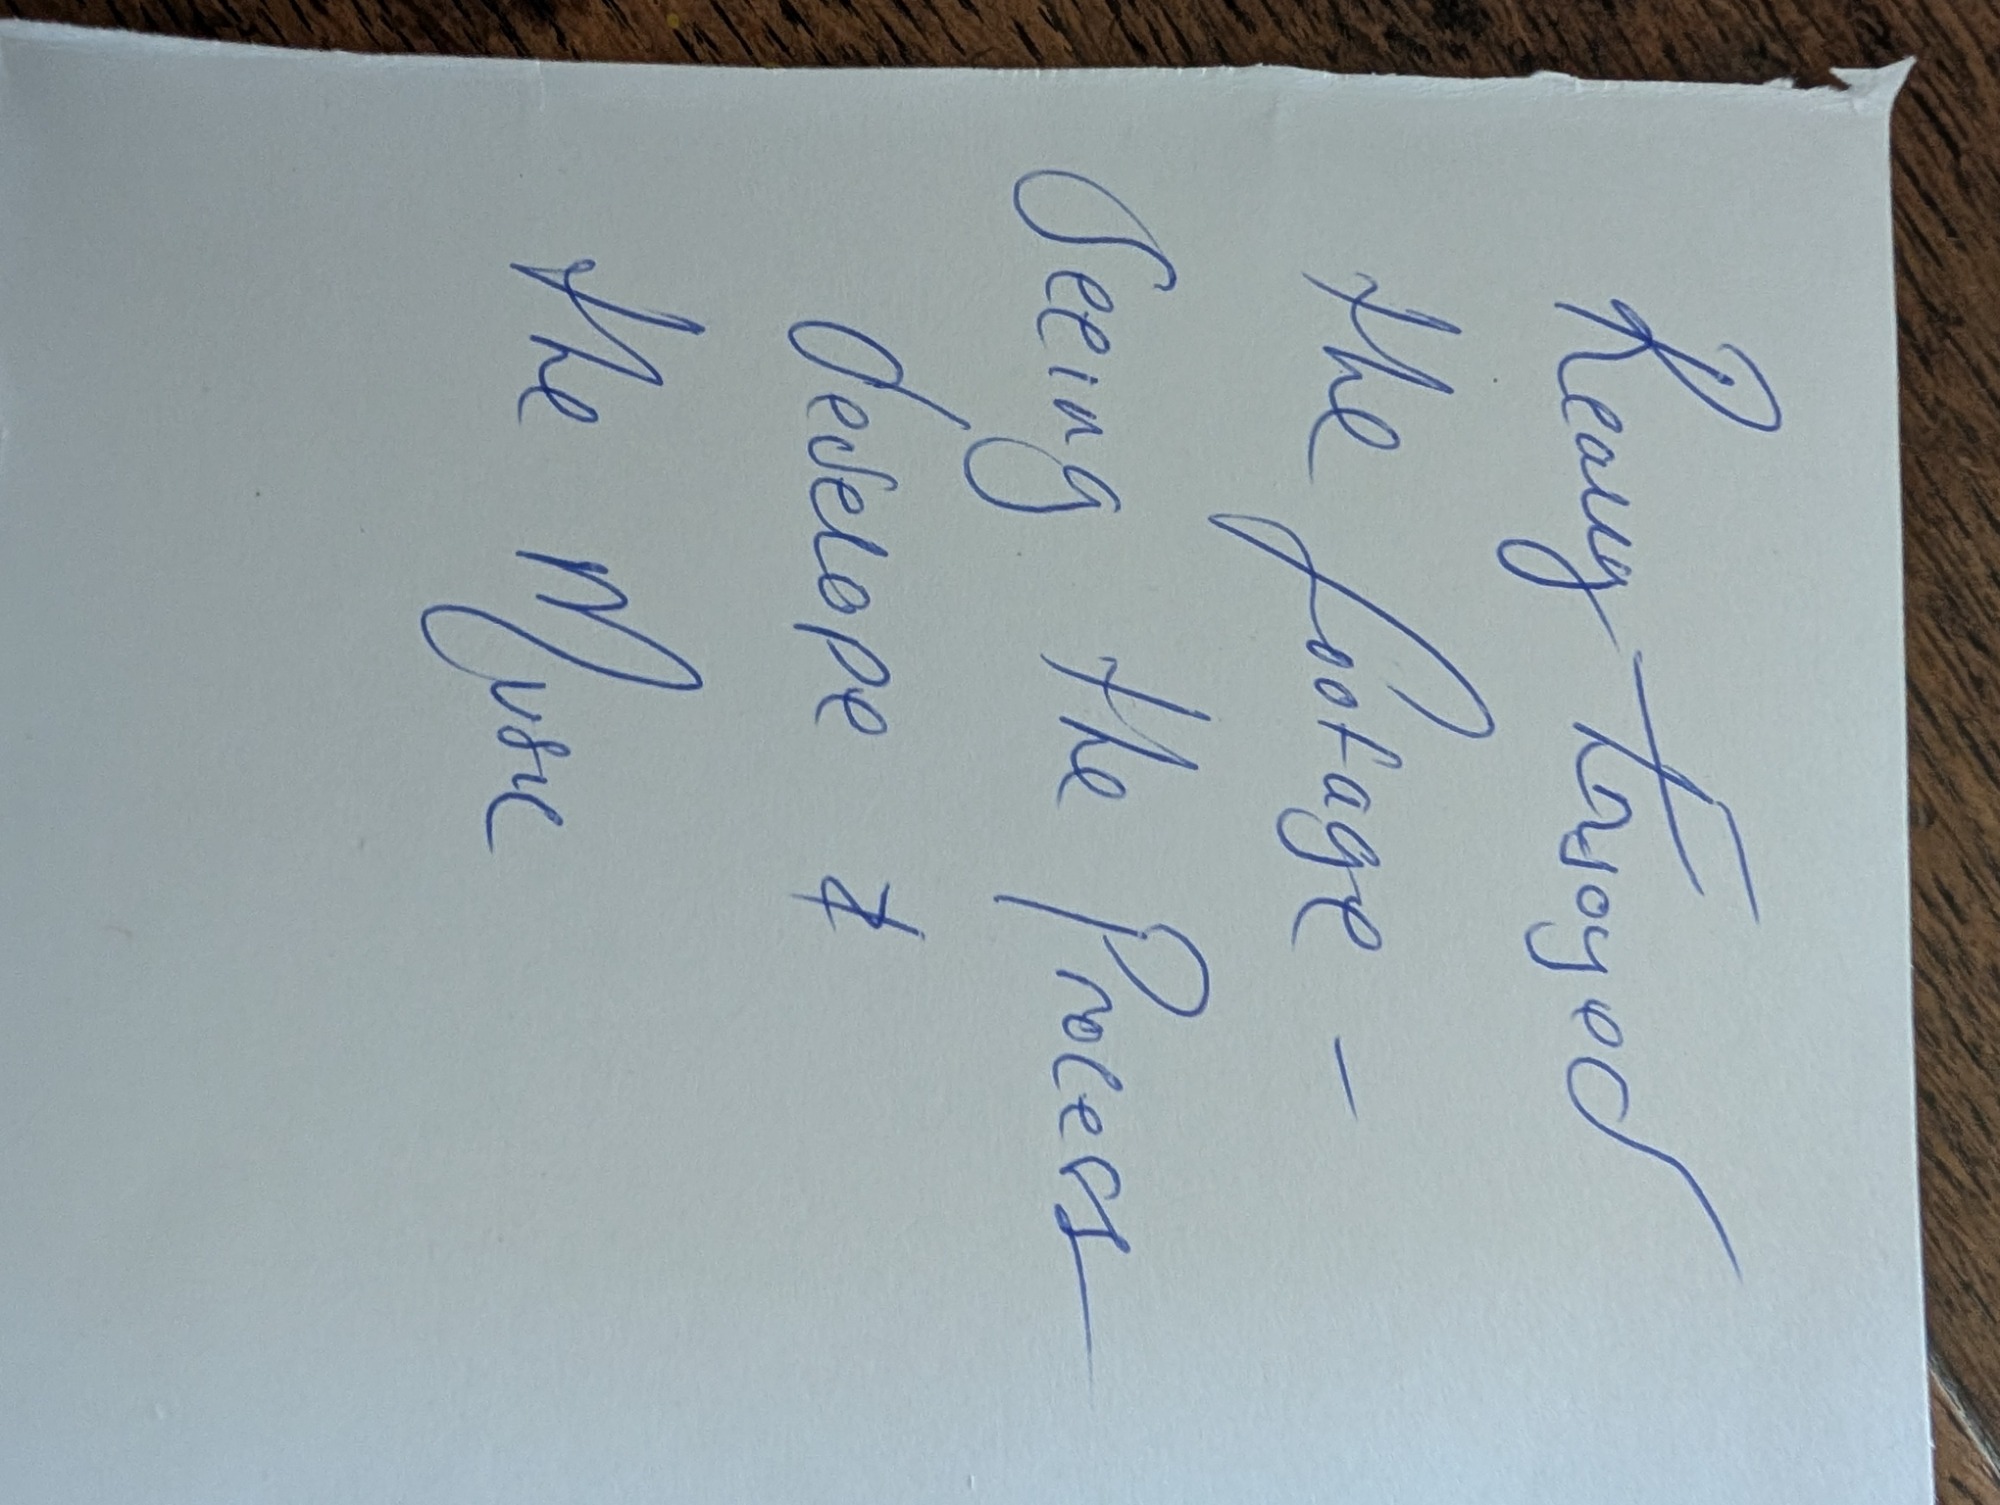 Really Enjoyed
the footage -
Seeing the Process
develope &
the Muse